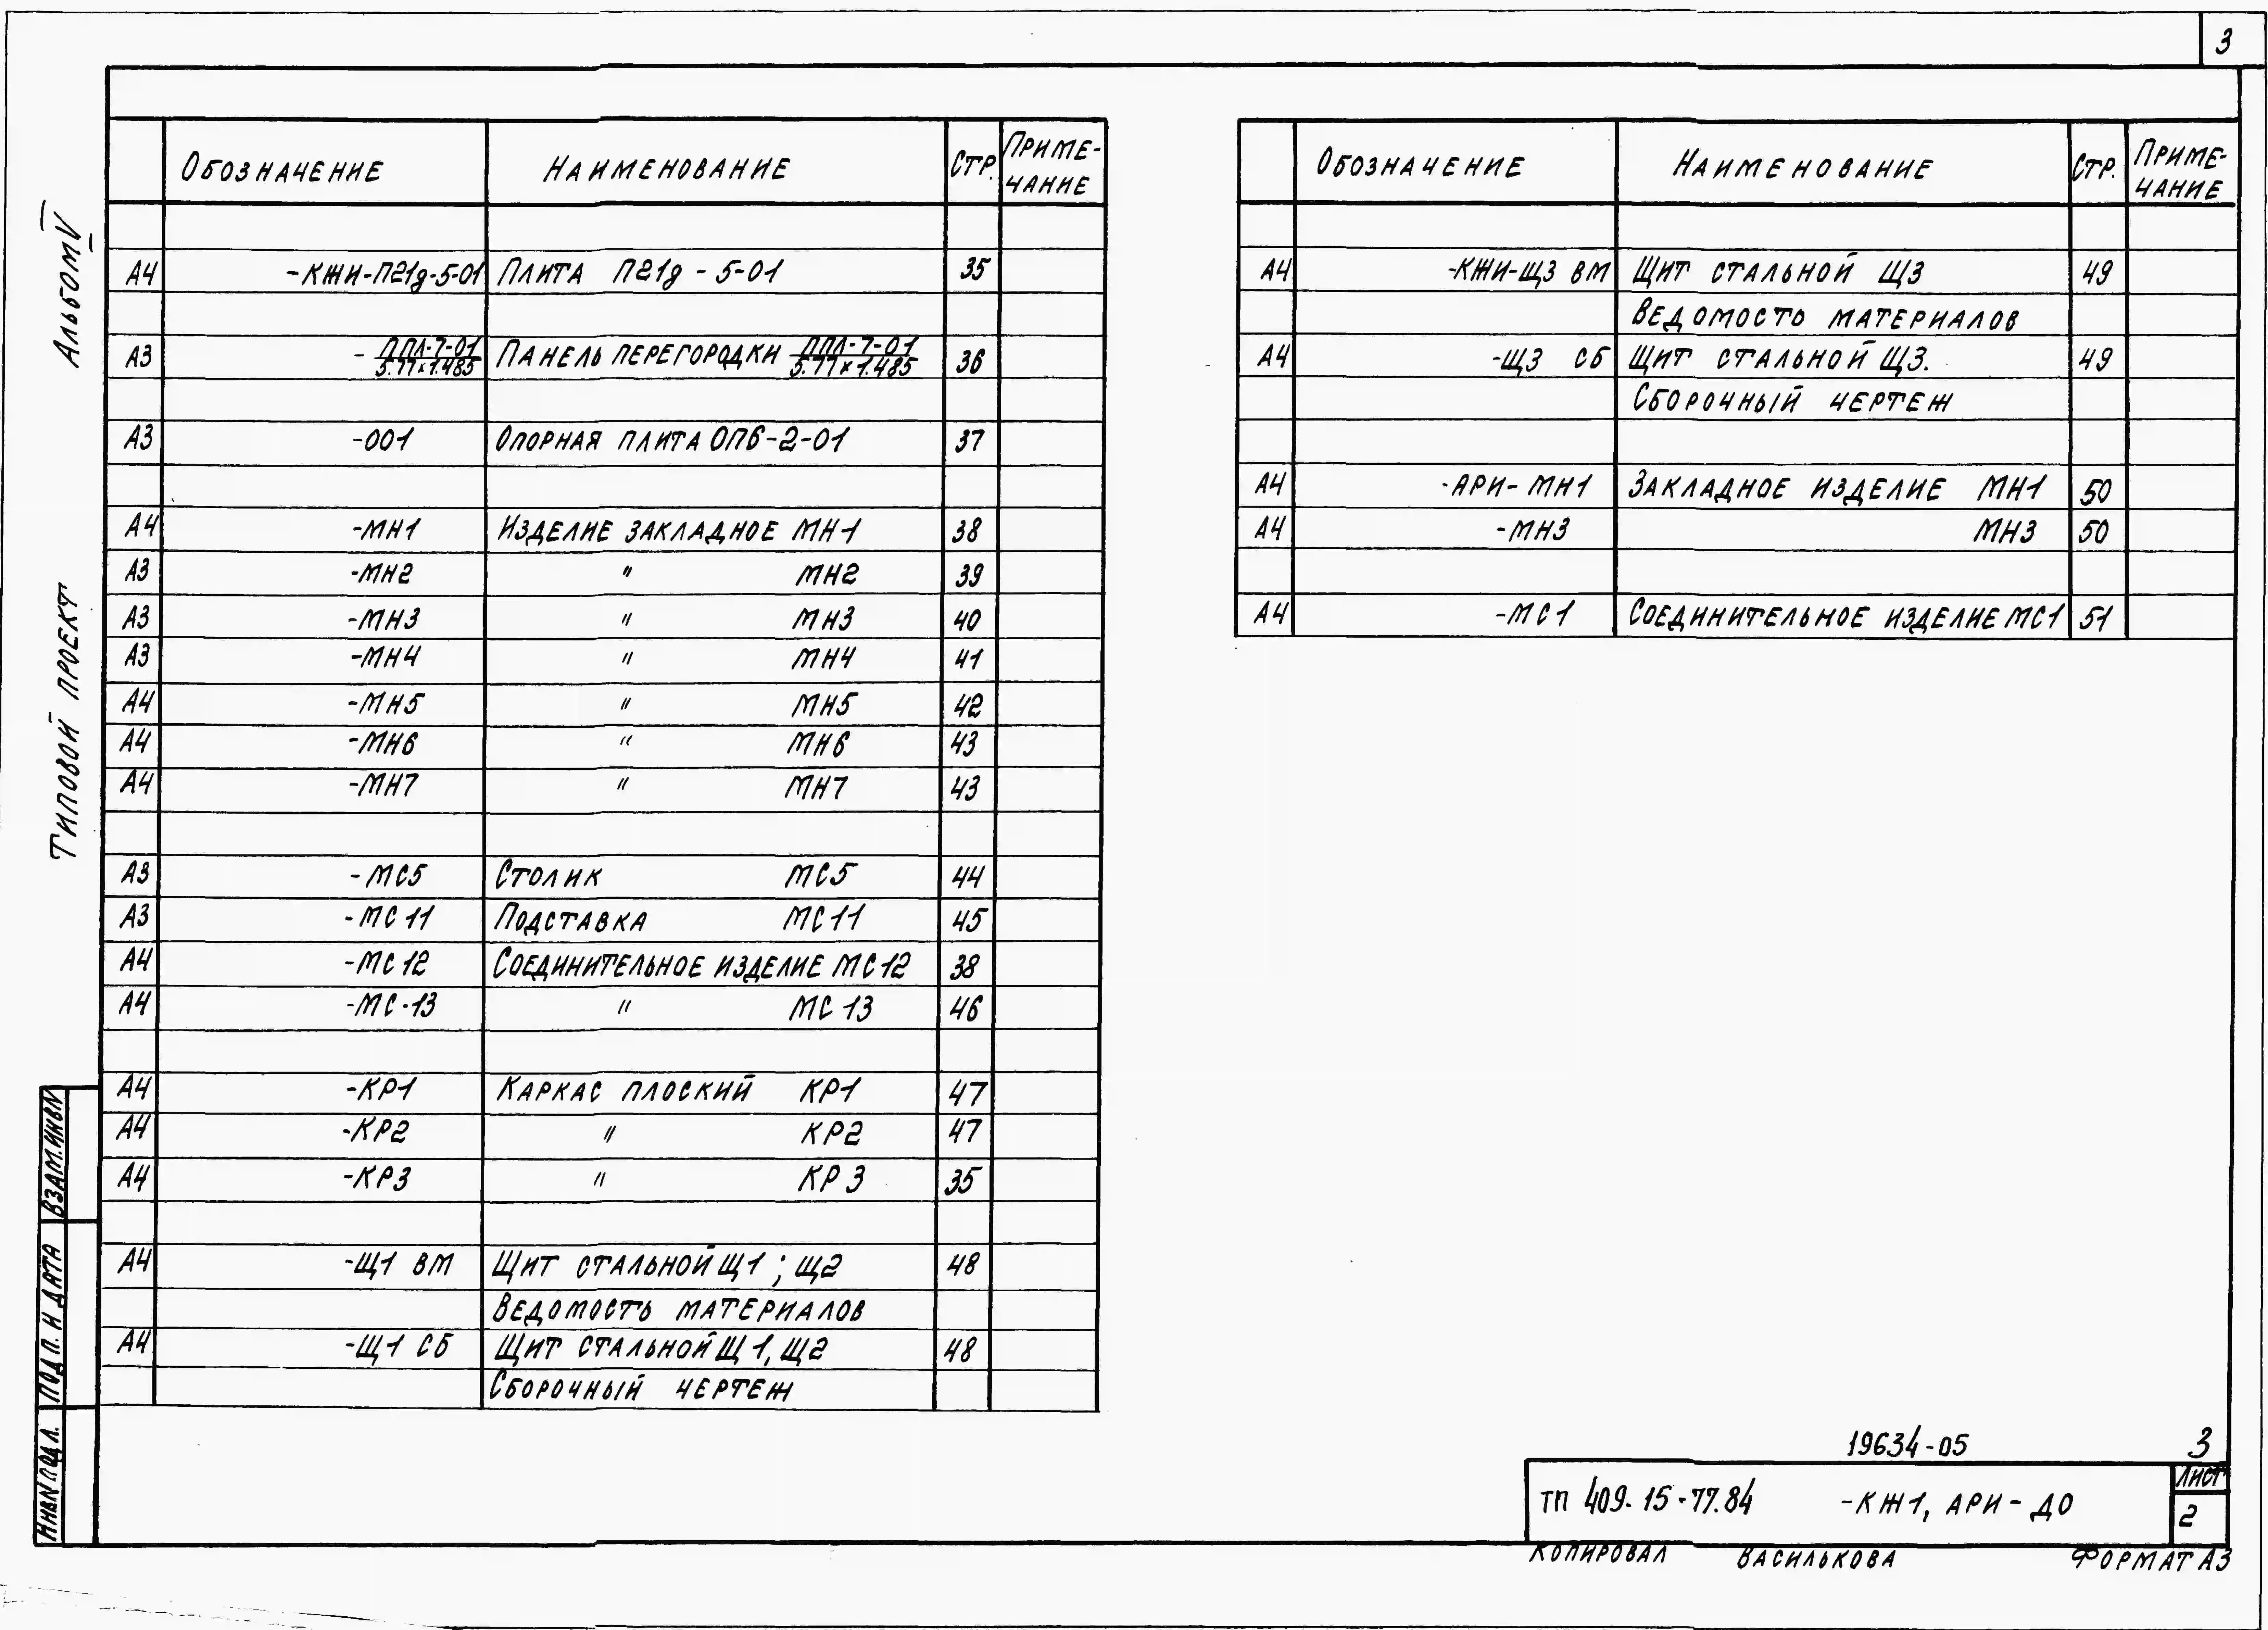 3
Альбом V
Типовой проект
Обозначение Наименование Стр. Приме-
чание
А4 -КЖИ-П21д-5-01 Плита П21д-5-01 35
А3 - ППЛ-7-01 / 5.77х1.485 Панель перегородки ППЛ-7-01 / 5.77х1.485 36
А3 -001 Опорная плита ОП6-2-01 37
А4 -МН1 Изделие закладное МН-1 38
А3 -МН2 " МН2 39
А3 -МН3 " МН3 40
А3 -МН4 " МН4 41
А4 -МН5 " МН5 42
А4 -МН6 " МН6 43
А4 -МН7 " МН7 43
А3 -МС5 Столик МС5 44
А3 -МС11 Подставка МС11 45
А4 -МС12 Соединительное изделие МС12 38
А4 -МС-13 " МС13 46
А4 -КР1 Каркас плоский КР1 47
А4 -КР2 " КР2 47
А4 -КР3 " КР3 35
А4 -Щ1 ВМ Щит стальной Щ1; Щ2 48
Ведомость материалов
А4 -Щ1 СБ Щит стальной Щ1, Щ2 48
Сборочный чертеж
Обозначение Наименование Стр. Приме-
чание
А4 -КЖИ-Щ3 ВМ Щит стальной Щ3 49
Ведомость материалов
А4 -Щ3 СБ Щит стальной Щ3. 49
Сборочный чертеж
А4 -АРИ-МН1 Закладное изделие МН1 50
А4 -МН3 МН3 50
А4 -МС1 Соединительное изделие МС1 51
Взам.инв№
Подп. и дата
Инв№подл.
19634-05 3
ТП 409-15-77.84 -КЖ1, АРИ-ДО
Лист
2
Копировал Василькова Формат А3